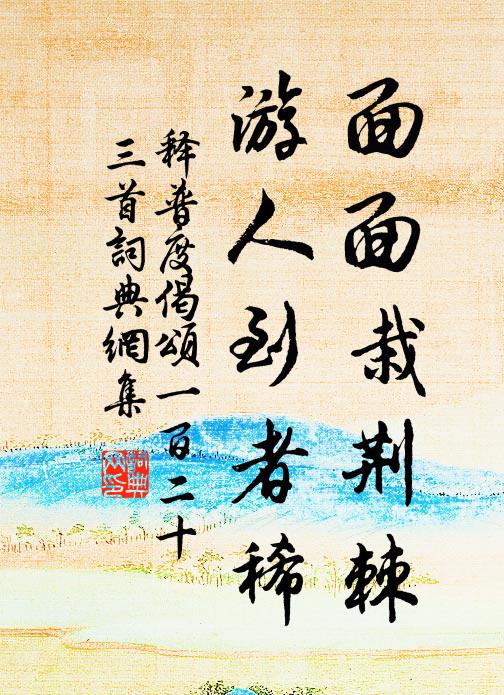 面面栽荆棘
游人到者稀
释普度偈頌一百二十
三首詞典網集